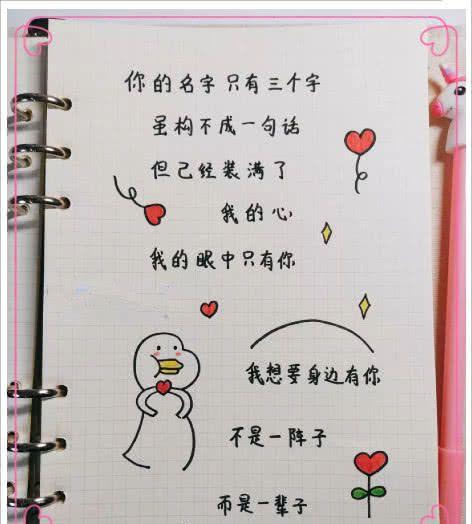 你的名字只有三个字
虽构不成一句话
但已经装满了
我的心
我的眼中只有你
我想要身边有你
不是一阵子
而是一辈子